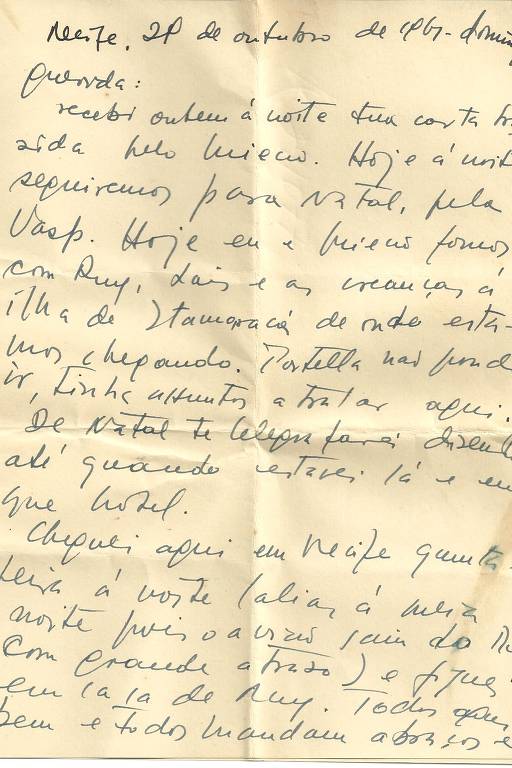 Recife, 28 de outubro de 1961 - doming
querida:
recebi ontem á noite tua carta tra
zida pelo Mirécio. Hoje á noit
seguiremos para Natal, pela
Vasp. Hoje eu e fomos
com Ruy, Lais e as crianças á
ilha de Itamaracá de onde esta-
mos chegando. Portella não poud
ir, tinha assuntos a tratar aqui.
De Natal te telegrafarei dizend
até quando estarei lá e em
que hotel.
Cheguei aqui em Recife quinta-
feira á noite (alias á meia
noite pois o avião saiu do R
com grande atraso) e fiquei
em casa de Ruy. Todos aqui
bem e todos mandam abraços e